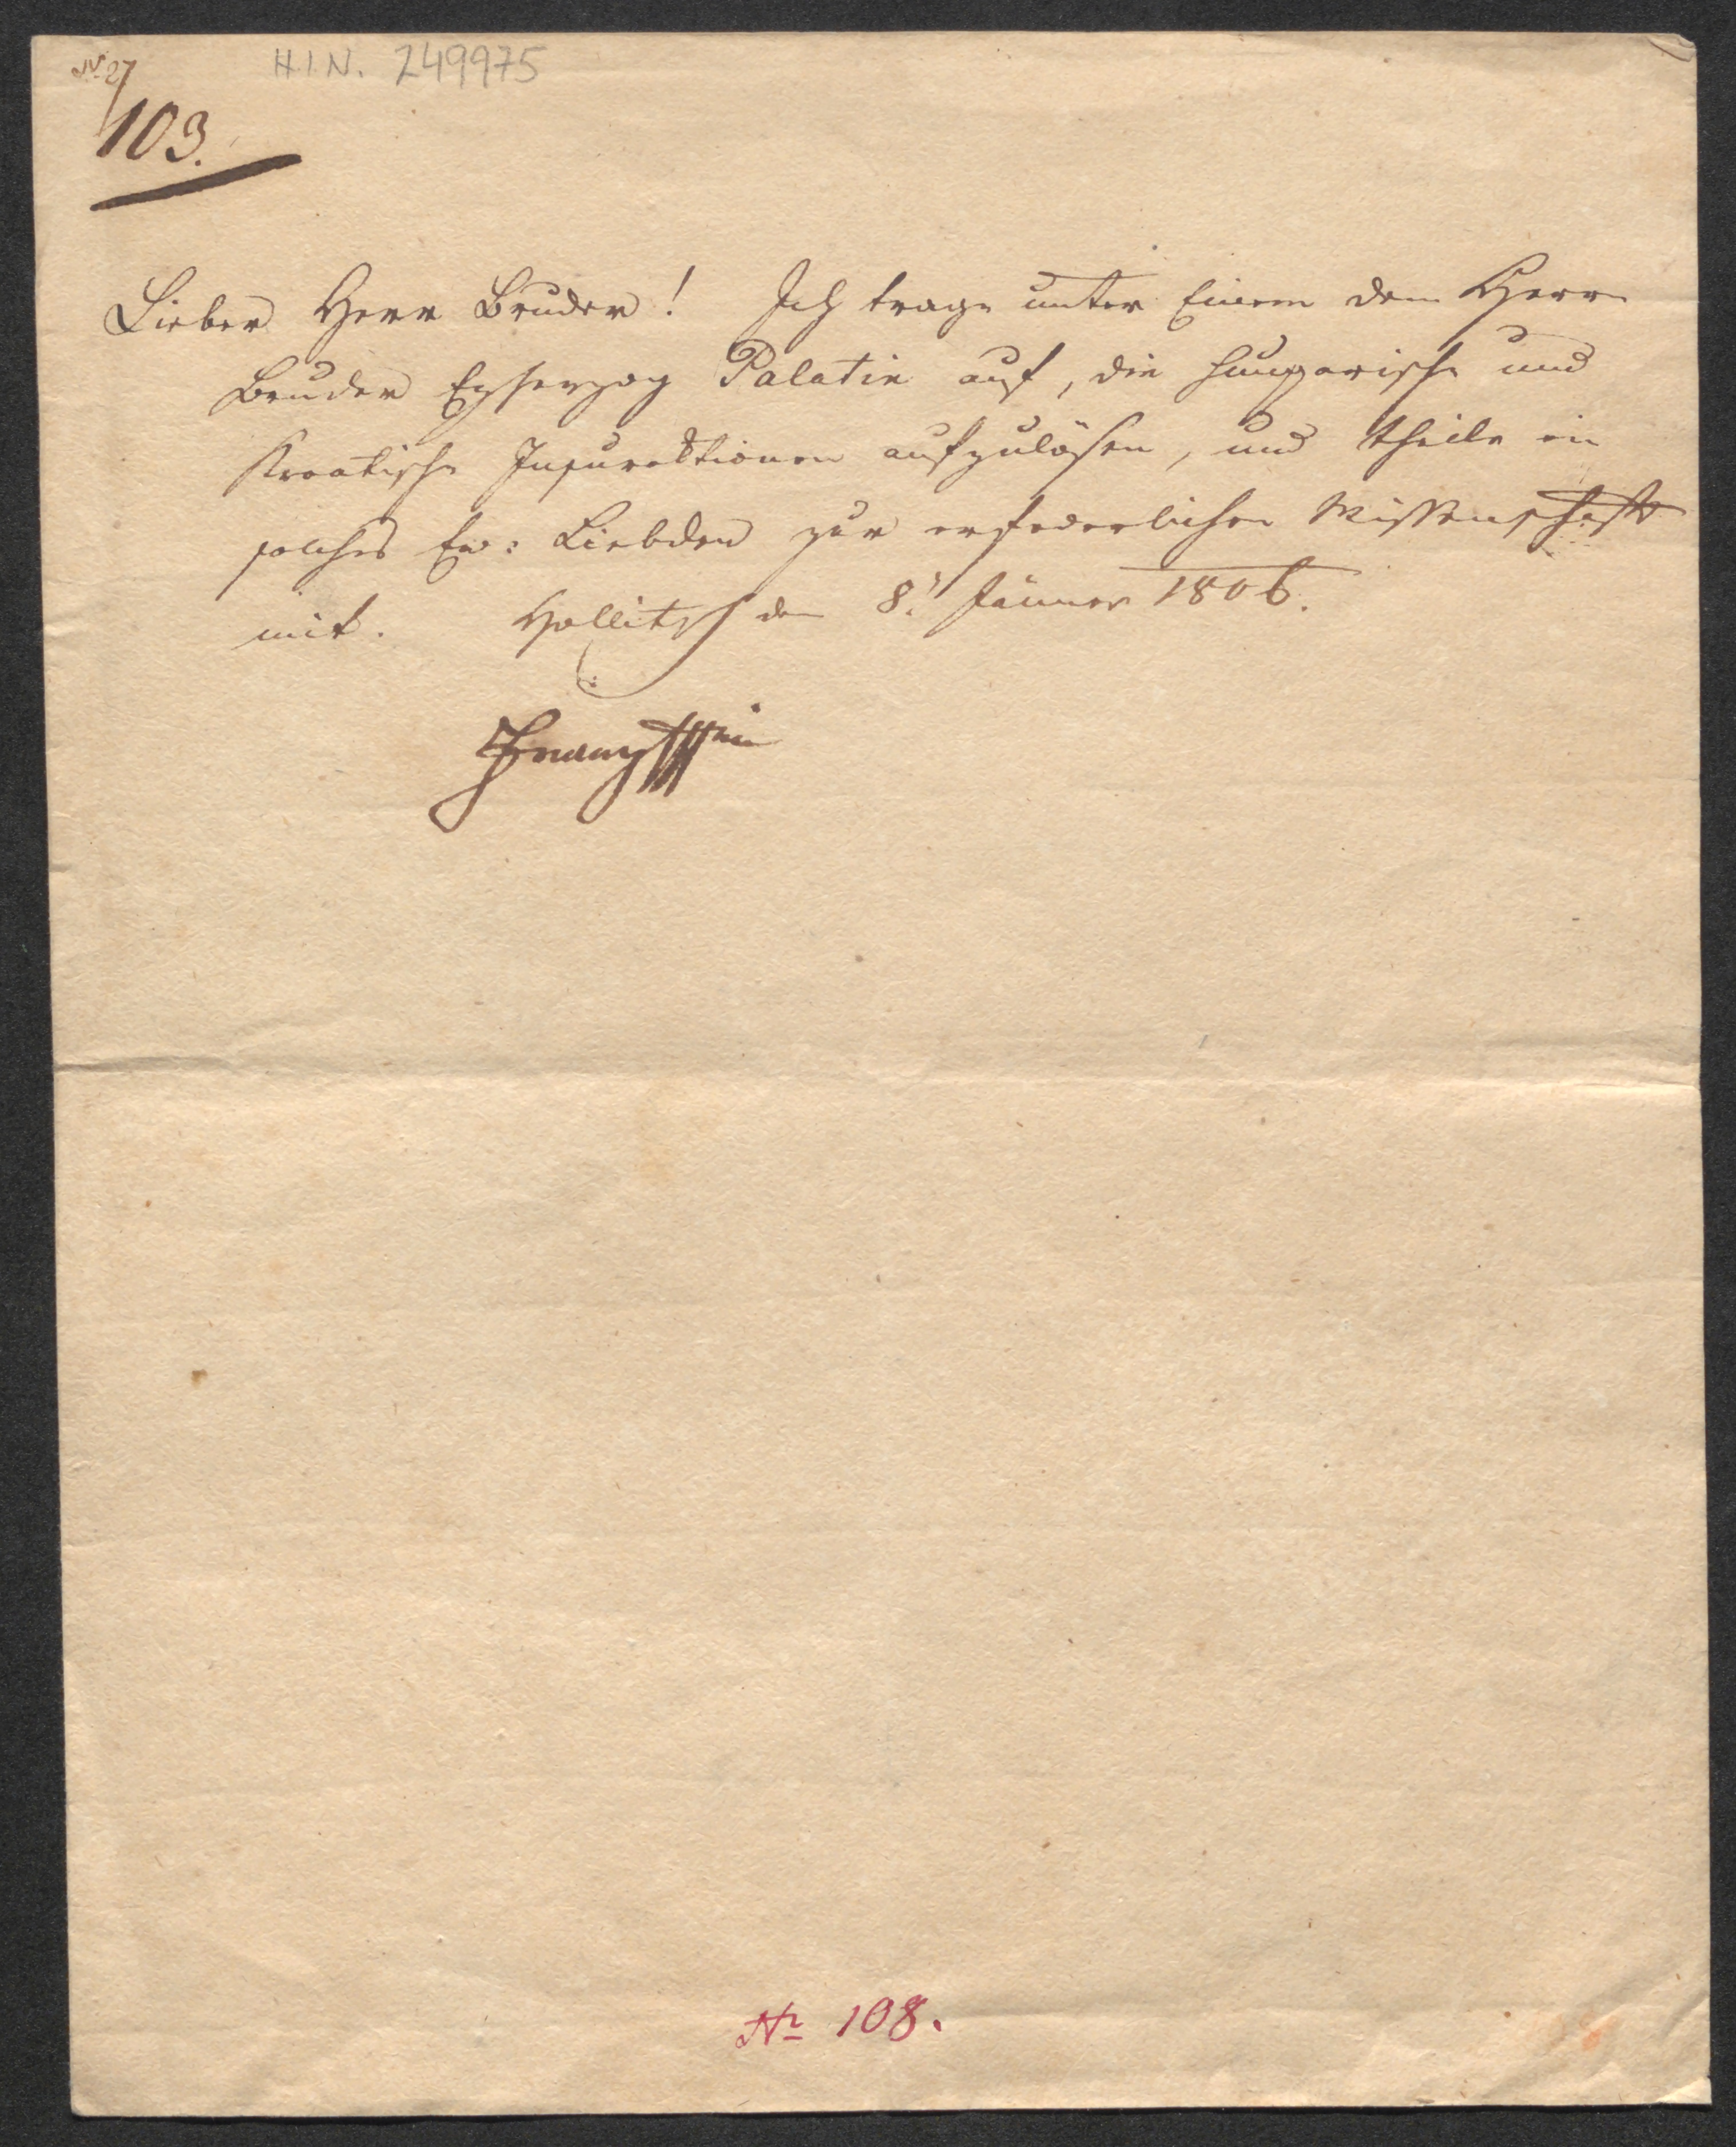 Nº 27
H.I.N. 249975
103.
Lieber Herr Bruder! Ich trage unter Einem dem Herrn
Bruder Erzherzog Palatin auf, die hungarische und
Kroatische Insurektionen aufzulösen, und theile ein
solches Ew: Liebden zur erfoderlichen Wissenschaft
mit. Hollitsch den 8t. Jänner 1806.
Franz
Nr 108.